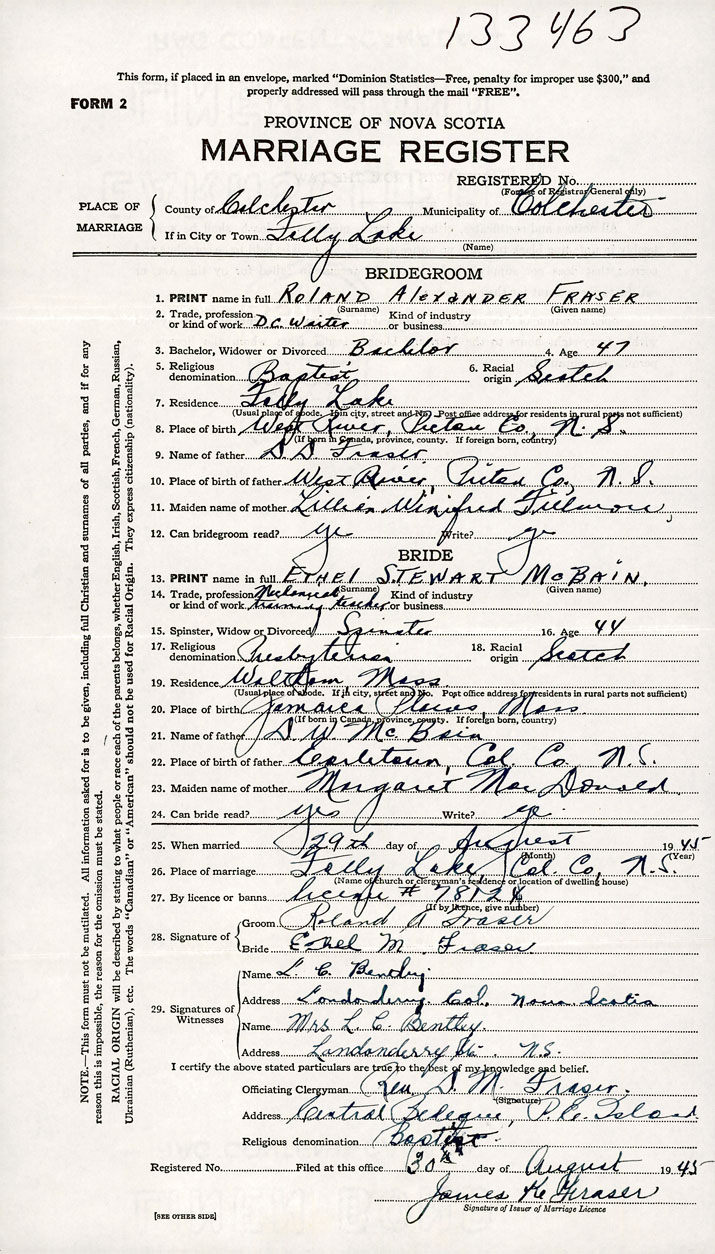 133463
This form, if placed in an envelope, marked "Dominion Statistics—Free, penalty for improper use $300," and
properly addressed will pass through the mail "FREE".
FORM 2
PROVINCE OF NOVA SCOTIA
MARRIAGE REGISTER
REGISTERED No.
(For use of Registrar General only)
PLACE OF MARRIAGE
County of Colchester Municipality of Colchester
If in City or Town Folly Lake
(Name)
BRIDEGROOM
1. PRINT name in full ROLAND AlExANDER FRASER
(Surname) (Given name)
2. Trade, profession or kind of work D.C. Waiter Kind of industry or business
3. Bachelor, Widower or Divorced Bachelor 4. Age 47
5. Religious denomination Baptist 6. Racial origin Scotch
7. Residence Folly Lake
(Usual place of abode. If in city, street and No. Post office address for residents in rural parts not sufficient)
8. Place of birth West River, Pictou Co, N.S.
(If born in Canada, province, county. If foreign born, country)
9. Name of father D D Fraser
10. Place of birth of father West River, Pictou Co, N.S.
11. Maiden name of mother Lillian Winifred Fillmore,
12. Can bridegroom read? ye Write? ye
BRIDE
13. PRINT name in full EThEl STEWART McBAIN.
(Surname) (Given name)
14. Trade, profession or kind of work Mechanical training teacher Kind of industry or business
15. Spinster, Widow or Divorced Spinster 16. Age 44
17. Religious denomination Presbyterian 18. Racial origin Scotch
19. Residence Waltham Mass.
(Usual place of abode. If in city, street and No. Post office address for residents in rural parts not sufficient)
20. Place of birth Jamaica Plains, Mass.
(If born in Canada, province, county. If foreign born, country)
21. Name of father D. W. McBain
22. Place of birth of father Earletown, Col. Co. N.S.
23. Maiden name of mother Margaret MacDonald
24. Can bride read? yes Write? ye.
25. When married 29th day of August 1945
(Month) (Year)
26. Place of marriage Folly Lake, Col. Co, N.S.
(Name of church or clergyman's residence or location of dwelling house)
27. By licence or banns license #
(If by licence, give number)
28. Signature of
Groom Roland A Fraser
Bride Ethel M. Fraser
29. Signatures of Witnesses
Name L. C. Bentley.
Address Londonderry Col. Nova Scotia
Name Mrs L. C. Bentley.
Address Londonderry Stn. N.S.
I certify the above stated particulars are true to the best of my knowledge and belief.
Officiating Clergyman Rev D. M. Fraser.
(Signature)
Address Central Bedeque, P.E. Island
Religious denomination Baptist
Registered No. Filed at this office 30th day of August 1945
James K Fraser
Signature of Issuer of Marriage Licence
[SEE OTHER SIDE]
NOTE.—This form must not be mutilated. All information asked for is to be given, including full Christian and surnames of all parties, and if for any
reason this is impossible, the reason for the omission must be stated.
RACIAL ORIGIN will be described by stating to what people or race each of the parents belongs, whether English, Irish, Scottish, French, German, Russian,
Ukrainian (Ruthenian), etc. The words "Canadian" or "American" should not be used for Racial Origin. They express citizenship (nationality).